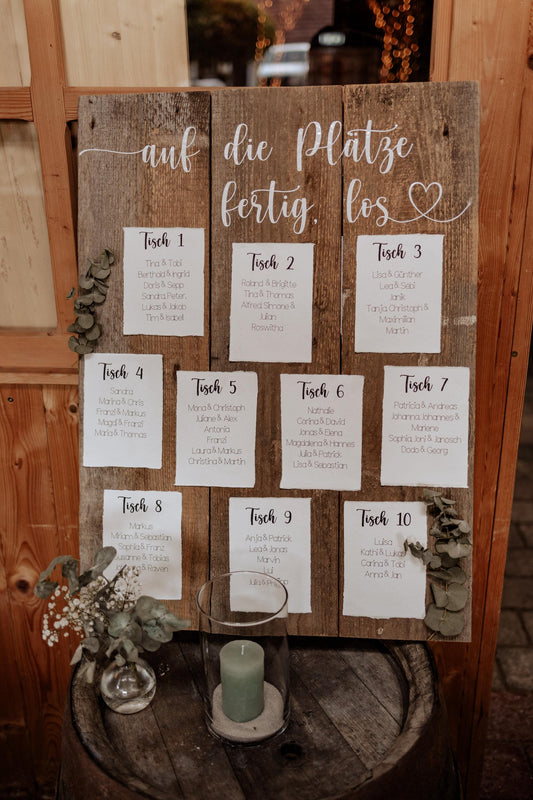 auf die Plätze
fertig, los
Tisch 1
Tina & Tobi
Berthold & Ingrid
Doris & Sepp
Sandra, Peter,
Lukas & Jakob
Tim & Isabel
Tisch 2
Roland & Brigitte
Tina & Thomas
Alfred, Simone &
Julian
Roswitha
Tisch 3
Lisa & Günther
Lea & Sebi
Janik
Tanja, Christoph &
Maximilian
Martin
Tisch 4
Sandra
Marina & Chris
Franzi & Markus
Magdi & Franzi
Maria & Thomas
Tisch 5
Mona & Christoph
Juliane & Alex
Antonia
Franzi
Laura & Markus
Christina & Martin
Tisch 6
Nathalie
Corina & David
Jonas & Elena
Magdalena & Hannes
Julia & Patrick
Lisa & Sebastian
Tisch 7
Patricia & Andreas
Johanna, Johannes &
Marlene
Sophia, Joni & Janosch
Dodo & Georg
Tisch 8
Markus
Miriam & Sebastian
Sophia & Franz
Susanne & Tobias
& Raven
Tisch 9
Anja & Patrick
Lea & Jonas
Marvin
Julia &
Tisch 10
Luisa
Kathi & Lukas
Carina & Tobi
Anna & Jan